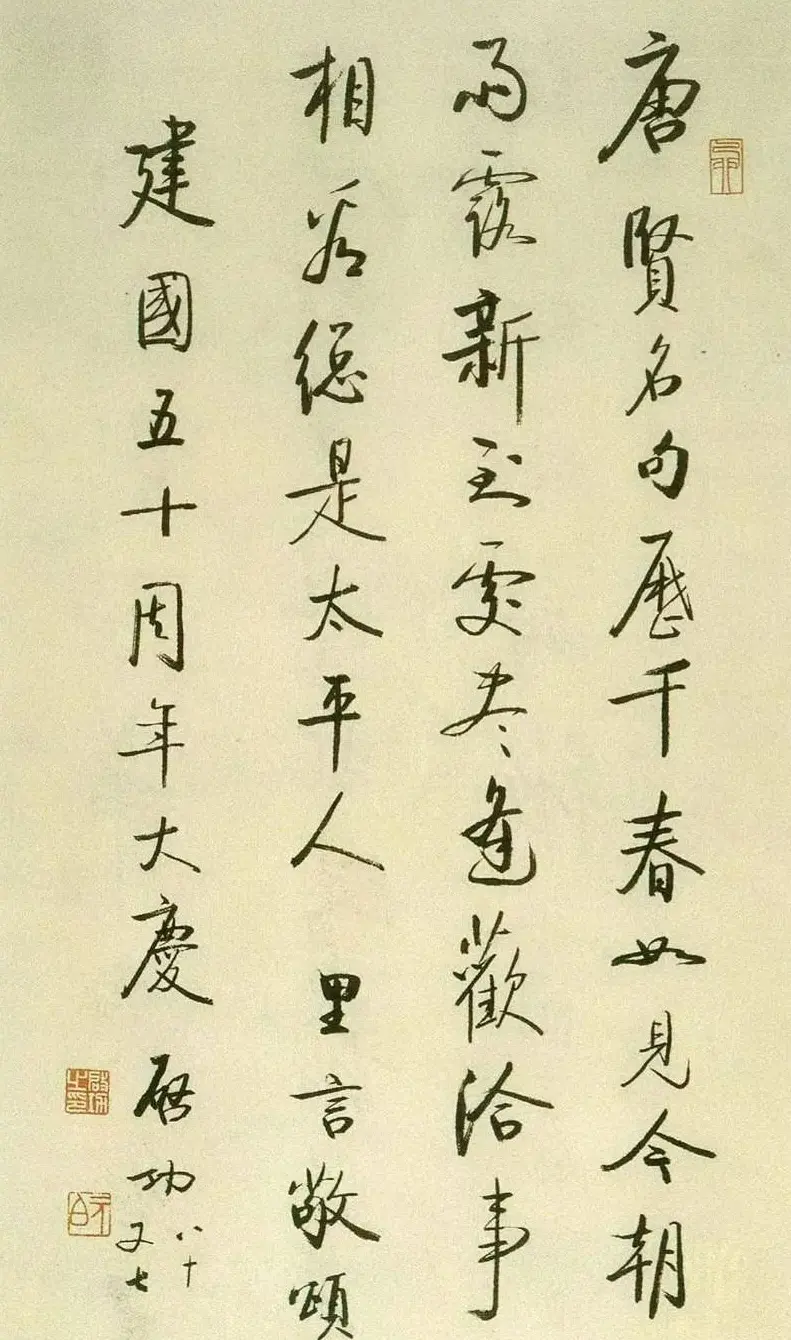 唐賢名句歷千春如見今朝
雨露新到處盡逢歡洽事
相看總是太平人 里言敬頌
建國五十周年大慶 啟功
八十
又七
啟功之印